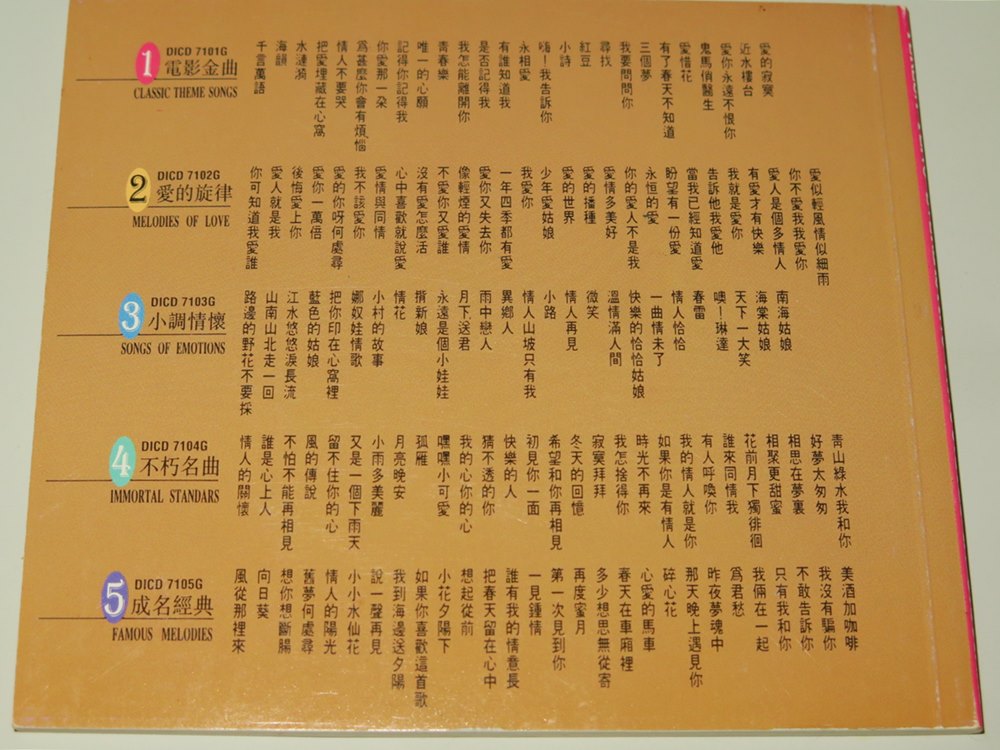 DICD 7101G
1 電影金曲
CLASSIC THEME SONGS
千言萬語
海韻
水漣漪
把愛埋藏在心窩
情人不要哭
爲甚麼你會有煩惱
你愛那一朵
記得你記得我
唯一的心願
青春樂
我怎能離開你
是否記得我
有誰知道我
永相愛
嗨！我告訴你
小詩
紅豆
尋找
我要問問你
三個夢
有了春天不知道
愛惜花
鬼馬俏醫生
愛你永遠不恨你
近水樓台
愛的寂寞
DICD 7102G
2 愛的旋律
MELODIES OF LOVE
你可知道我愛誰
愛人就是我
後悔愛上你
愛你一萬倍
愛的你呀何處尋
我不該愛你
愛情與同情
心中喜歡就說愛
沒有愛怎麼活
不愛你又愛誰
像輕煙的愛情
愛你又失去你
一年四季都有愛
我愛你
少年愛姑娘
愛的世界
愛的播種
愛情多美好
你的愛人不是我
永恒的愛
盼望有一份愛
當我已經知道愛
告訴他我愛他
我就是愛你
有愛才有快樂
愛人是個多情人
你不愛我我愛你
愛似輕風情似細雨
DICD 7103G
3 小調情懷
SONGS OF EMOTIONS
路邊的野花不要採
山南山北走一回
江水悠悠淚長流
藍色的姑娘
把你印在心窩裡
娜奴娃情歌
小村的故事
情花
揹新娘
永遠是個小娃娃
月下送君
雨中戀人
異鄉人
情人山坡只有我
小路
情人再見
微笑
溫情滿人間
快樂的恰恰姑娘
一曲情未了
情人恰恰
春雷
噢！琳達
天下一大笑
海棠姑娘
南海姑娘
DICD 7104G
4 不朽名曲
IMMORTAL STANDARS
情人的關懷
誰是心上人
不怕不能再相見
風的傳說
留不住你的心
又是一個下雨天
小雨多美麗
月亮晚安
孤雁
嘿嘿小可愛
我的心你的心
猜不透的你
快樂的人
初見你一面
希望和你再相見
冬天的回憶
寂寞拜拜
我怎捨得你
時光不再來
如果你是有情人
我的情人就是你
有人呼喚你
誰來同情我
花前月下獨徘徊
相聚更甜蜜
相思在夢裏
好夢太匆匆
靑山綠水我和你
DICD 7105G
5 成名經典
FAMOUS MELODIES
風從那裡來
向日葵
想你想斷腸
舊夢何處尋
情人的陽光
小小水仙花
說一聲再見
我到海邊送夕陽
如果你喜歡這首歌
小花夕陽下
想起從前
把春天留在心中
誰有我的情意長
一見鍾情
第一次見到你
再度蜜月
多少想思無從寄
春天在車廂裡
心愛的馬車
碎心花
那天晚上遇見你
昨夜夢魂中
爲君愁
我倆在一起
只有我和你
不敢告訴你
我沒有騙你
美酒加咖啡